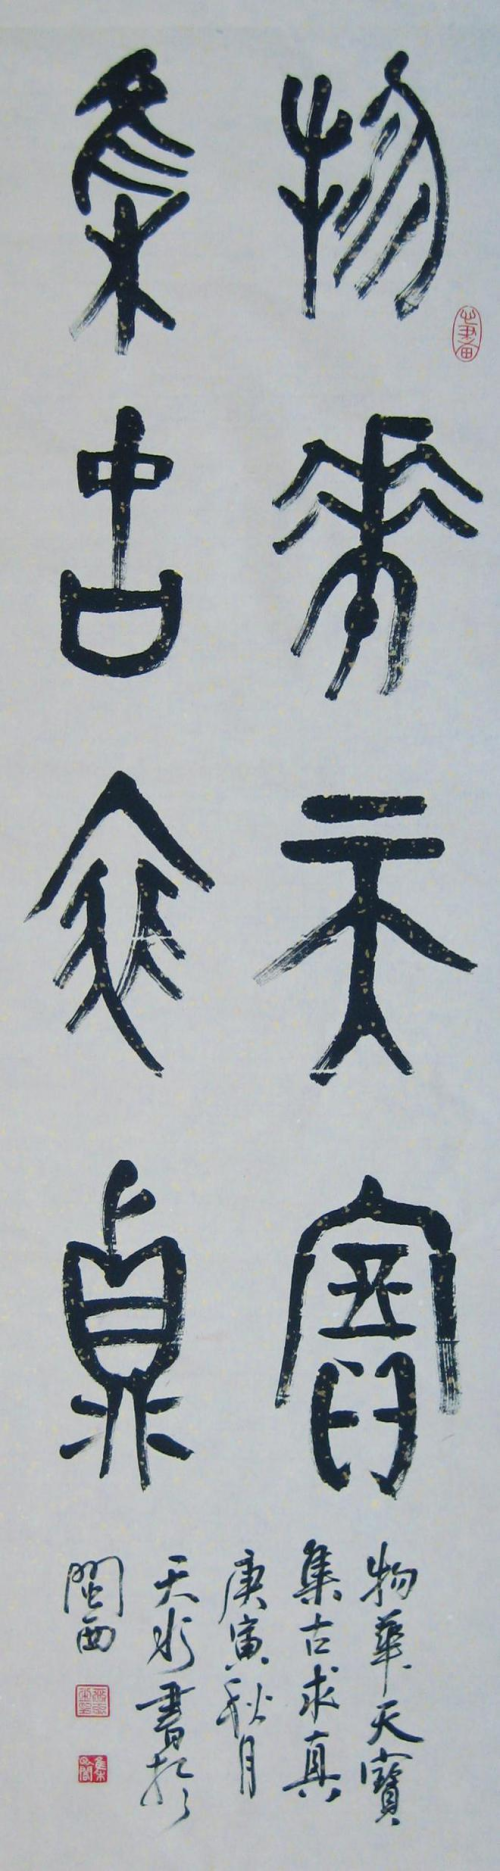 物華天寶
集古求真
物華天寶
集古求真
庚寅秋月
天水書於
閩西